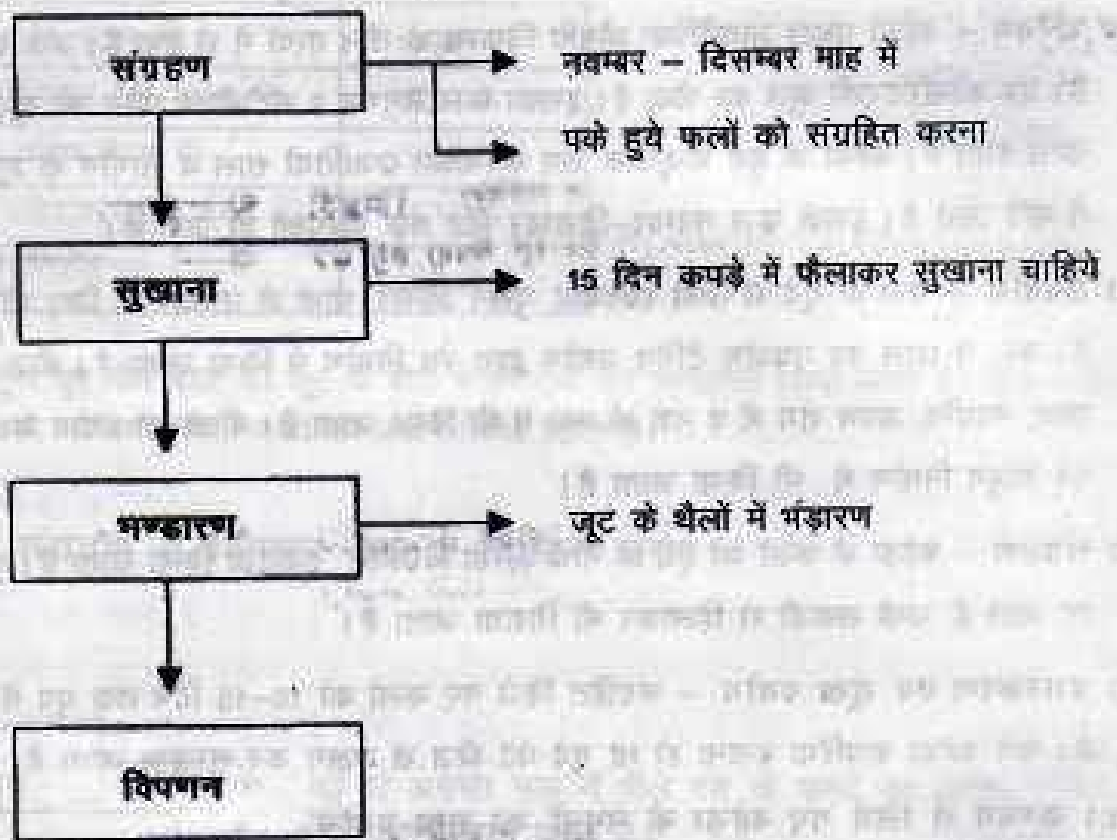 संग्रहण
नवम्बर – दिसम्बर माह में
पके हुये फलों को संग्रहित करना
सुखाना
15 दिन कपड़े में फैलाकर सुखाना चाहिये
भण्डारण
जूट के थैलों में भंड़ारण
विपणन